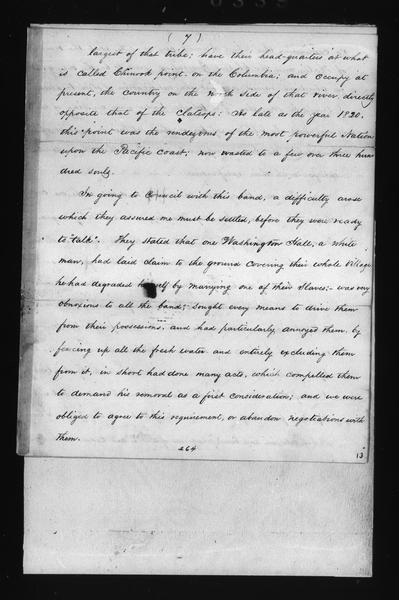 (7)
largest of that tribe; have their head-quarters at what
is called Chinook point on the Columbia; and occupy at
present, the country on the North side of that river directly
opposite that of the Clatsops: As late as the year 1830.
this point was the rendezvous of the most powerful Nation
upon the Pacific coast; now wasted to a few over three hun
dred souls.
In going to Council with this band, a difficulty arose
which they assured me must be settled, before they were ready
to "talk". They stated that one Washington Hall, a white
man, had laid claim to the ground covering their whole Village
he had degraded himself by marrying one of their Slaves:- was very
obnoxious to all the band; sought every means to drive them
from their possessions, and had particularly annoyed them, by
fencing up all the fresh water and entirely excluding them
from it, in short had done many acts, which compelled them
to demand his removal as a first consideration; and we were
obliged to agree to this requirement, or abandon negotiations with
them.
264
13